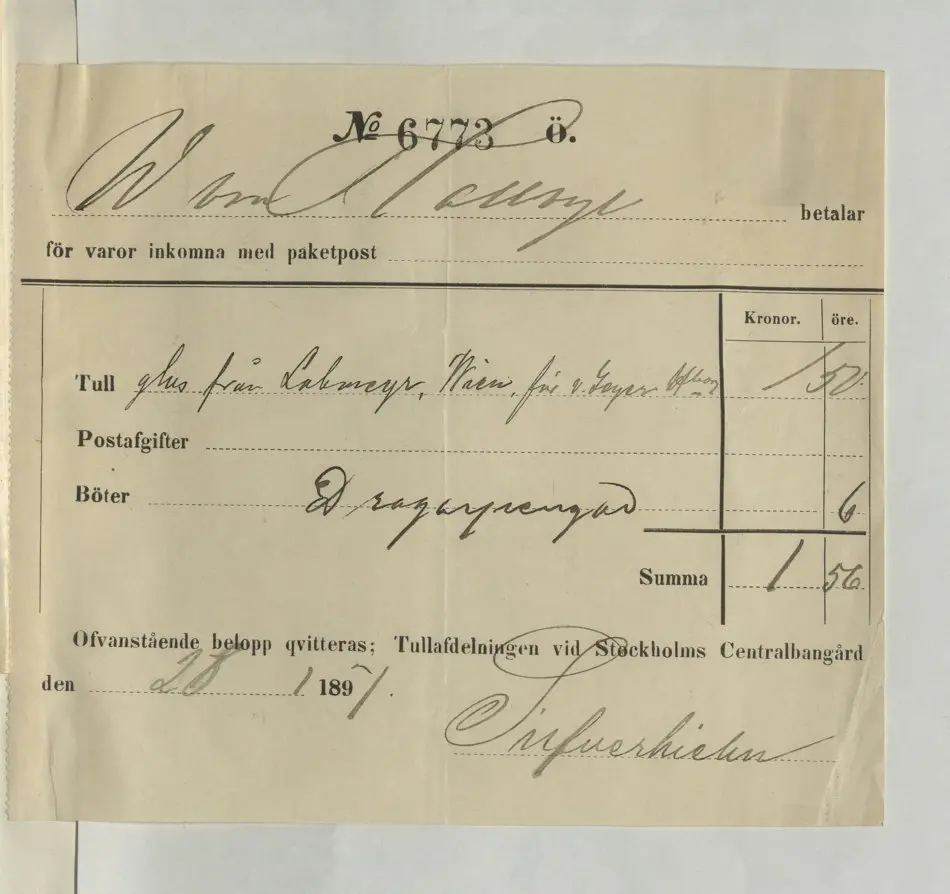 № 6773 ö.
W von Hallwyl betalar
för varor inkomna med paketpost
Kronor. öre.
Tull glas från Lobmeyr, Wien, för v. Geyer 1 50
Postafgifter
Böter Dragarpengar 6
Summa 1 56
Ofvanstående belopp qvitteras; Tullafdelningen vid Stockholms Centralbangård
den 28 / 1 1897.
Silfverhielm